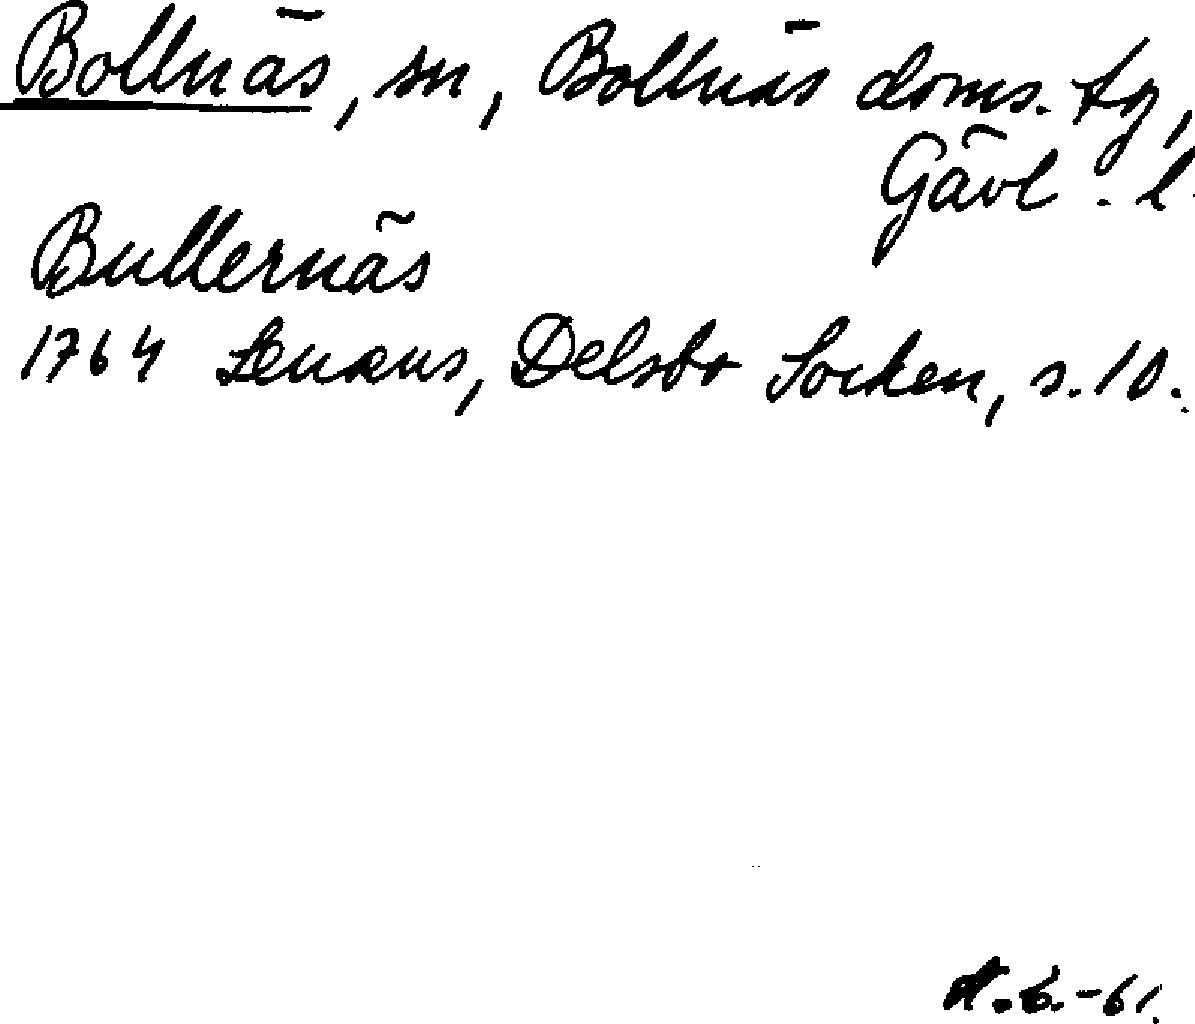 Bollnäs, sn, Bollnäs doms. tg,
Gävl. l.
Bullernäs
1764 Lenæus, Delsbo Socken, s. 10.
-61.